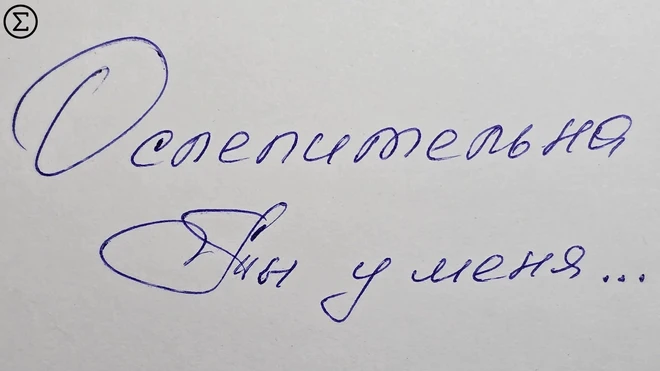 Σ
Ослепительна
Ты у меня...